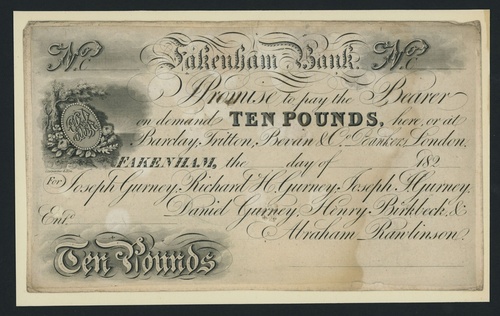 No. Fakenham Bank. No.
I Promise to pay the Bearer
on demand TEN POUNDS, here, or at
Barclay, Tritton, Bevan & Co. Bankers, London.
FAKENHAM, the day of 182
For Joseph Gurney, Richard H. Gurney, Joseph J. Gurney,
Daniel Gurney, Henry Birkbeck, &
Entd. Abraham Rawlinson.
Ten Pounds